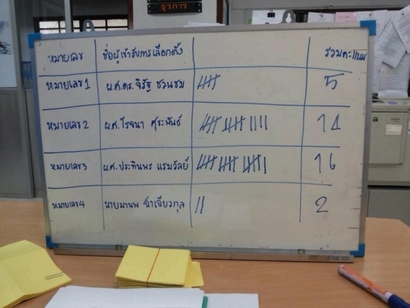 ธุรการ
หมายเลข ชื่อผู้เข้ารับการเลือกตั้ง รวมคะแนน
หมายเลข 1 ผ.ศ.ดร. จิรัฐ ชวนชม 5
หมายเลข 2 ผ.ศ. โรจนา ศุระพันธ์ 14
หมายเลข 3 ผ.ศ. ประทินพร แรมวัลย์ 16
หมายเลข 4 นายมานพ 2